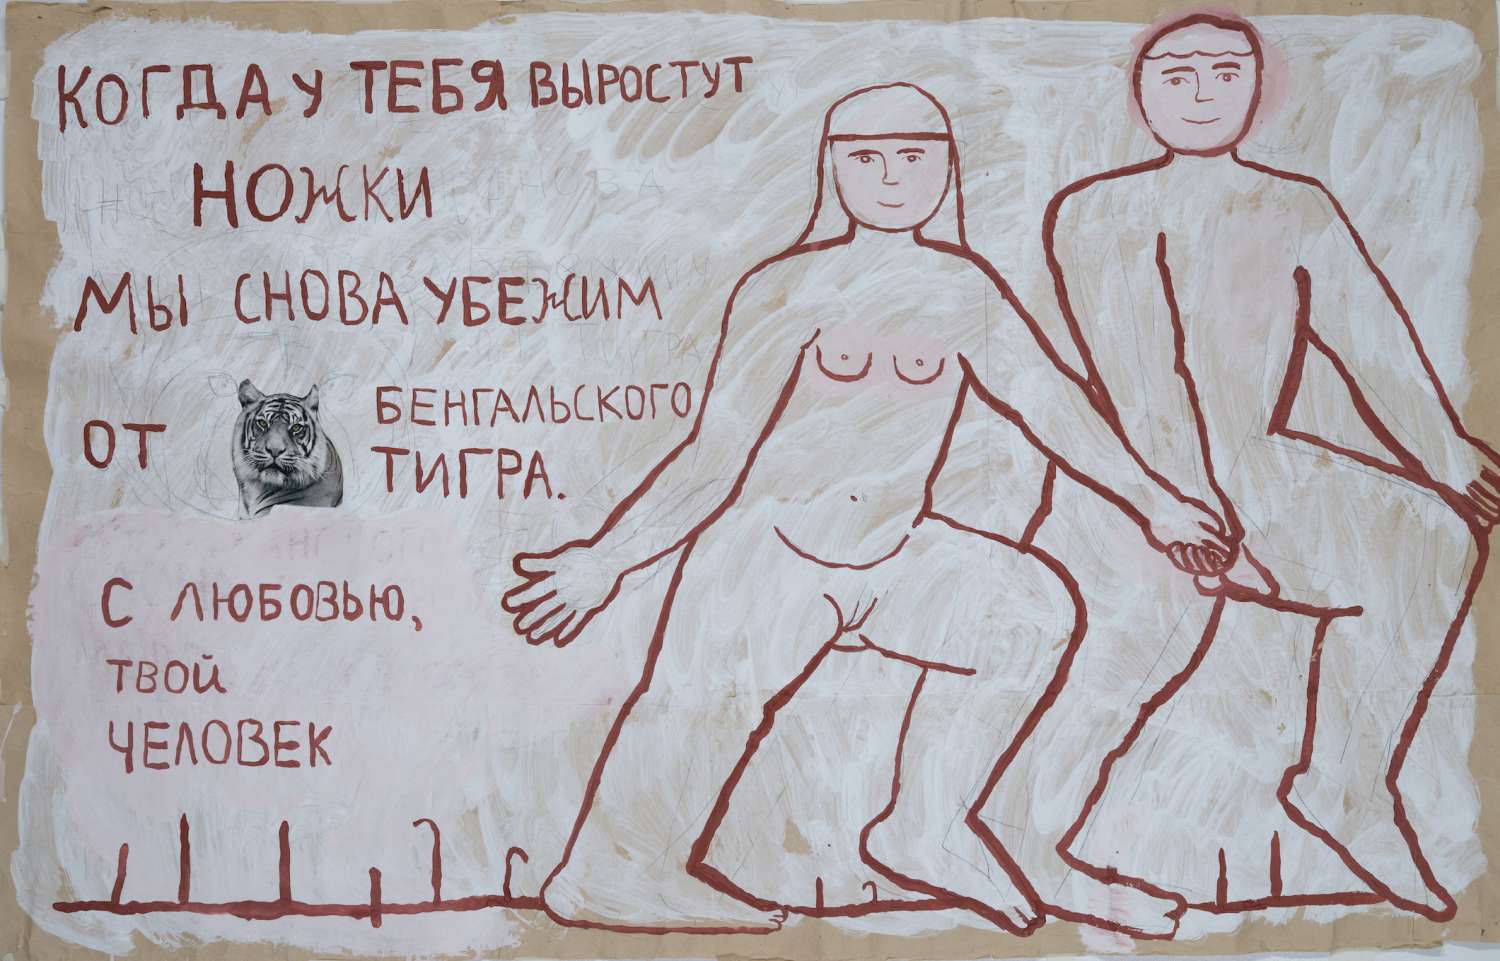 КОГДА У ТЕБЯ ВЫРОСТУТ
НОЖКИ
МЫ СНОВА УБЕЖИМ
ОТ БЕНГАЛЬСКОГО
ТИГРА.
С ЛЮБОВЬЮ,
ТВОЙ
ЧЕЛОВЕК